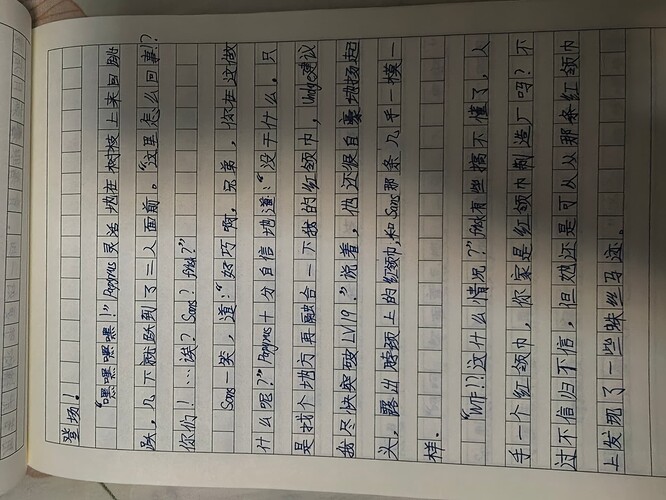 登场！
“嘿嘿嘿嘿！”Papyrus灵活地在树枝上来回跳
跃，几下就跃到了二人面前。“这里怎么回事？
你们！…诶？Sans？frisk？”
Sans一笑，道：“好巧啊，兄弟，你在这做
什么呢？”Papyrus十分自信地道：“没干什么，只
是找个地方再融合一下我的红领巾，Undyne建议
我尽快突破LV19。”说着，他还很自豪地扬起
头，露出脖颈上的红领巾，和Sans那条几乎一模一
样。
“WTF！？这什么情况？”frisk有些搞不懂了，人
手一个红领巾，你家是红领巾制造厂吗？不
过不信归不信，但她还是可以从那条红领巾
上发现了一些蛛丝马迹。